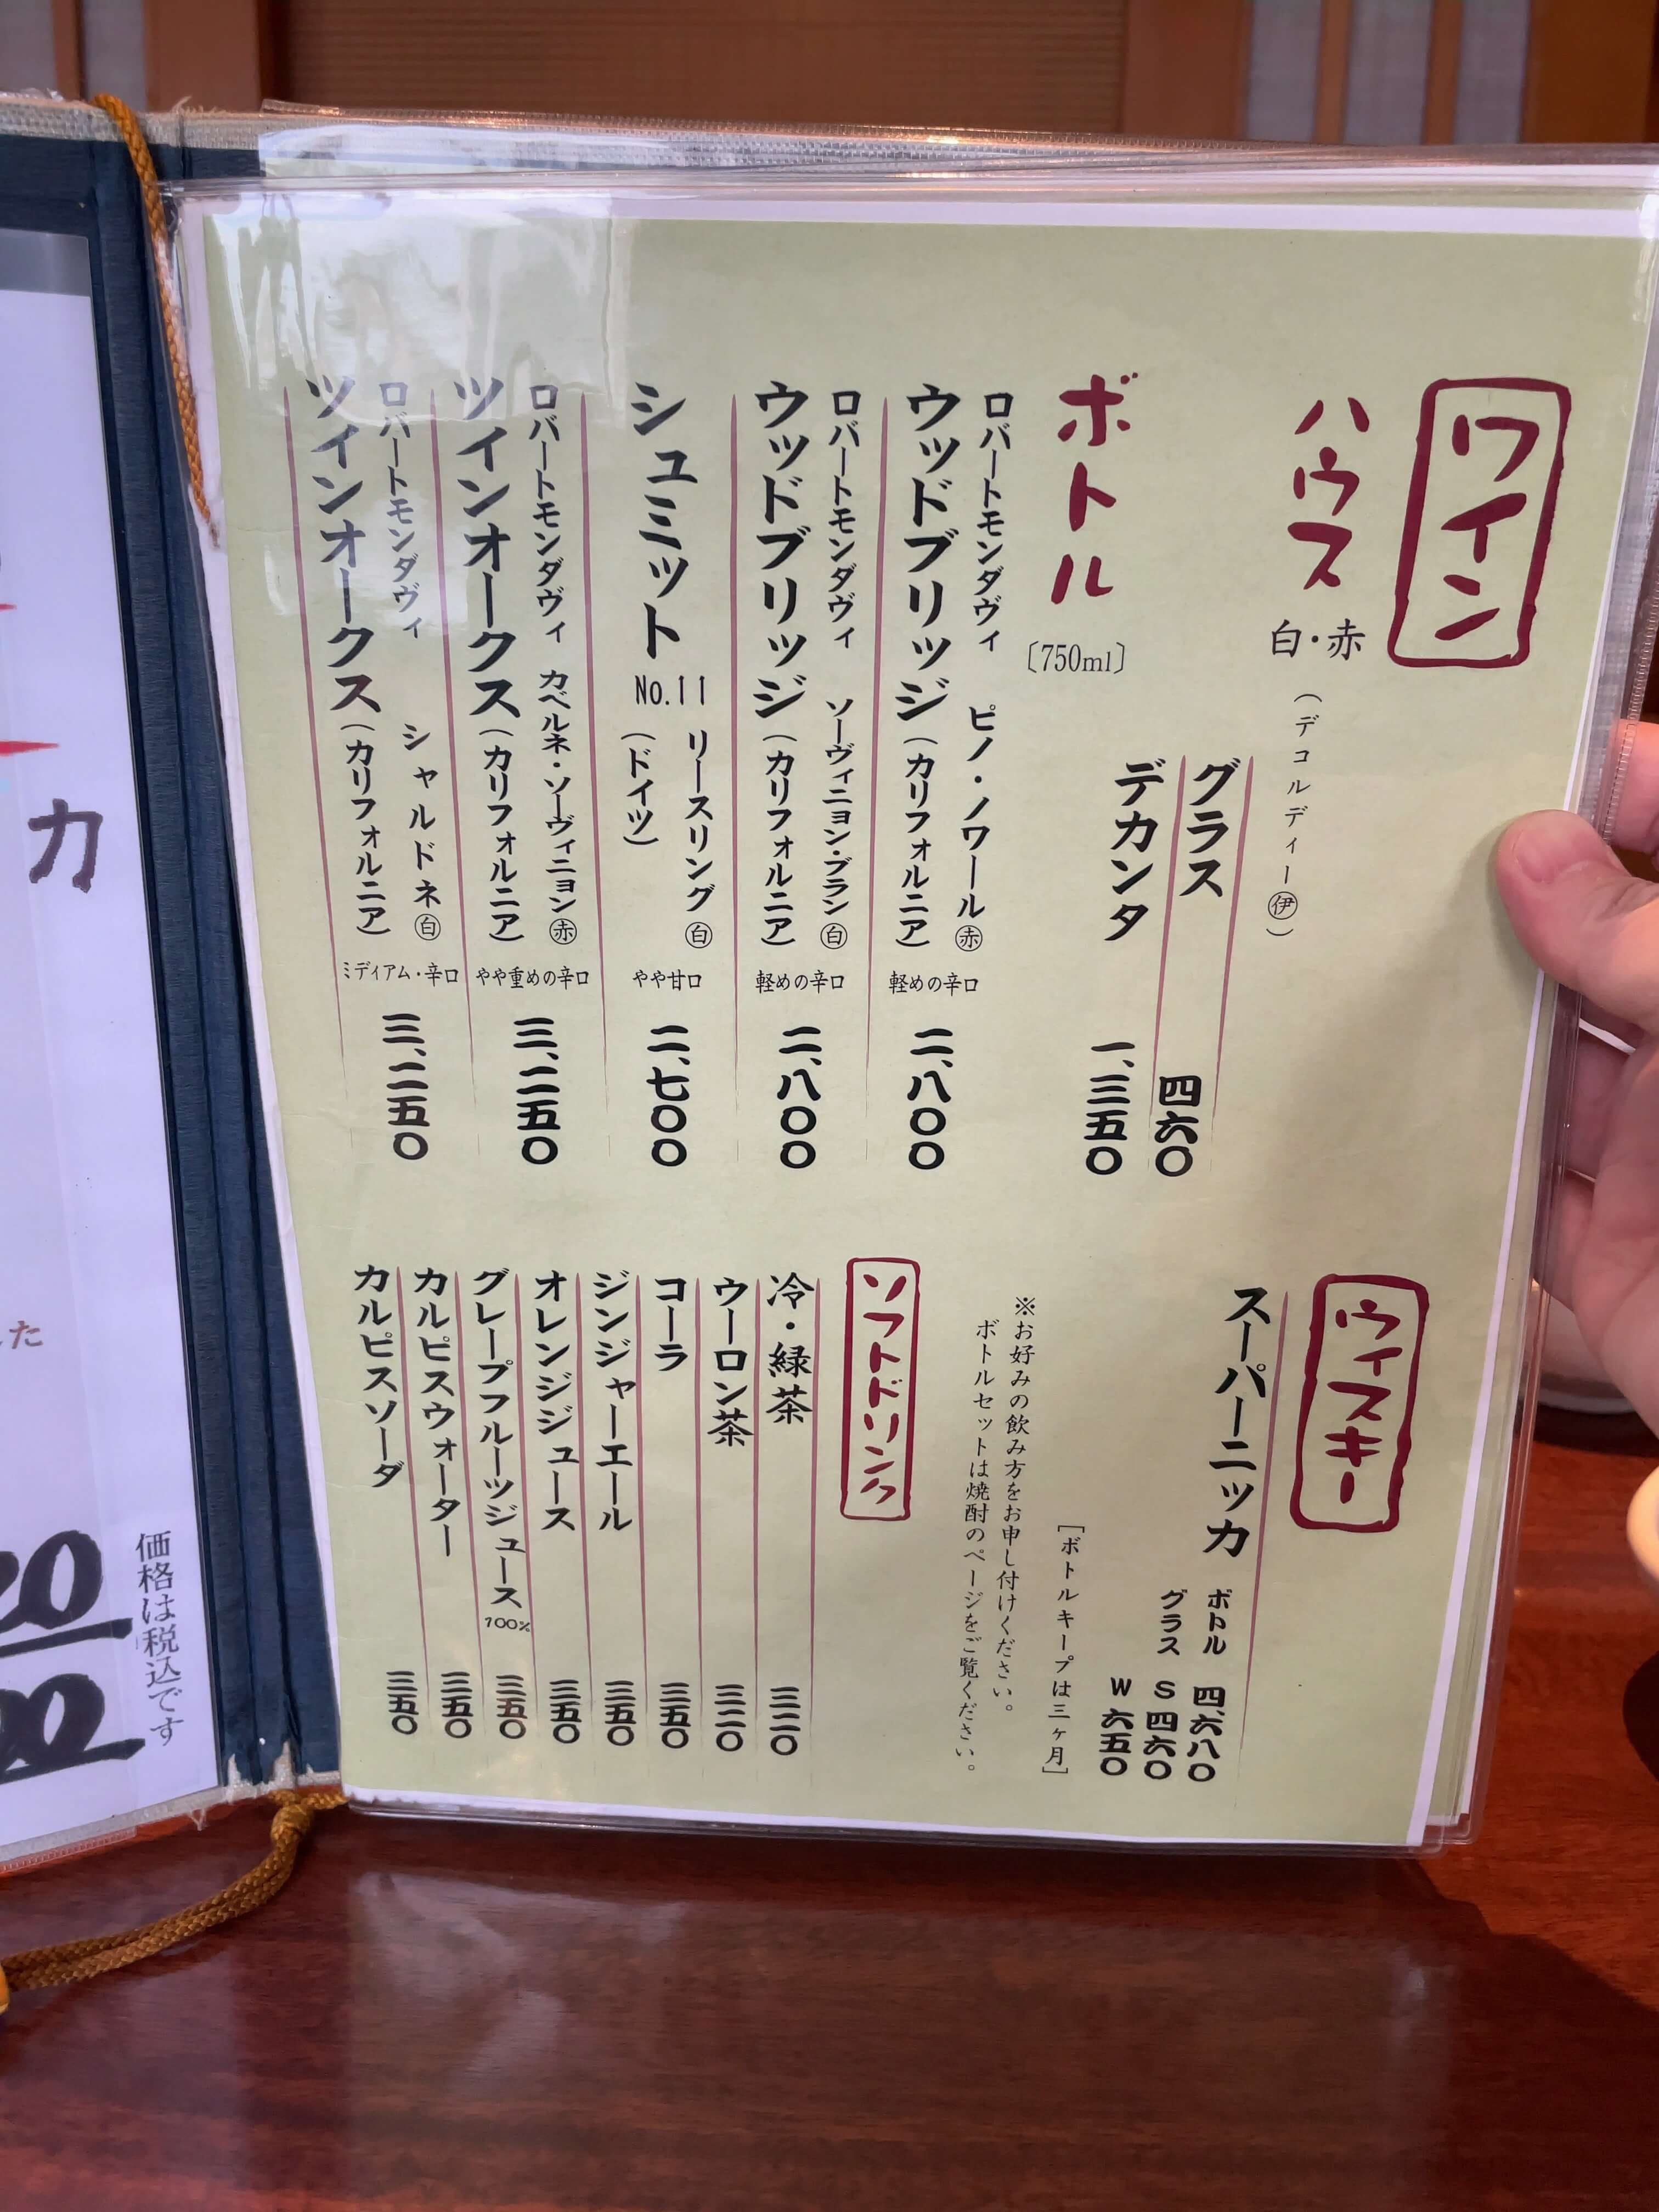 ワイン
ハウス 白・赤 (デコルディー㊥伊)
グラス 四六〇
デカンタ 一、三五〇
ボトル 〔750ml〕
ロバートモンダヴィ ピノ・ノワール ㊍赤
ウッドブリッジ (カリフォルニア) 軽めの辛口 二、八〇〇
ロバートモンダヴィ ソーヴィニヨン・ブラン 白
ウッドブリッジ (カリフォルニア) 軽めの辛口 二、八〇〇
シュミット No.11 リースリング 白 (ドイツ) やや甘口 二、七〇〇
ロバートモンダヴィ カベルネ・ソーヴィニヨン 赤
ツインオークス (カリフォルニア) やや重めの辛口 三、二五〇
ロバートモンダヴィ シャルドネ 白
ツインオークス (カリフォルニア) ミディアム・辛口 三、二五〇
ウィスキー
スーパーニッカ ボトル 四、六八〇
グラス S 四六〇
W 六五〇
[ボトルキープは三ヶ月]
※お好みの飲み方をお申し付けください。
ボトルセットは焼酎のページをご覧ください。
ソフトドリンク
冷・緑茶 三二〇
ウーロン茶 三二〇
コーラ 三五〇
ジンジャーエール 三五〇
オレンジジュース 三五〇
グレープフルーツジュース 100% 三五〇
カルピスウォーター 三五〇
カルピスソーダ 三五〇
カ
した
価格は税込です